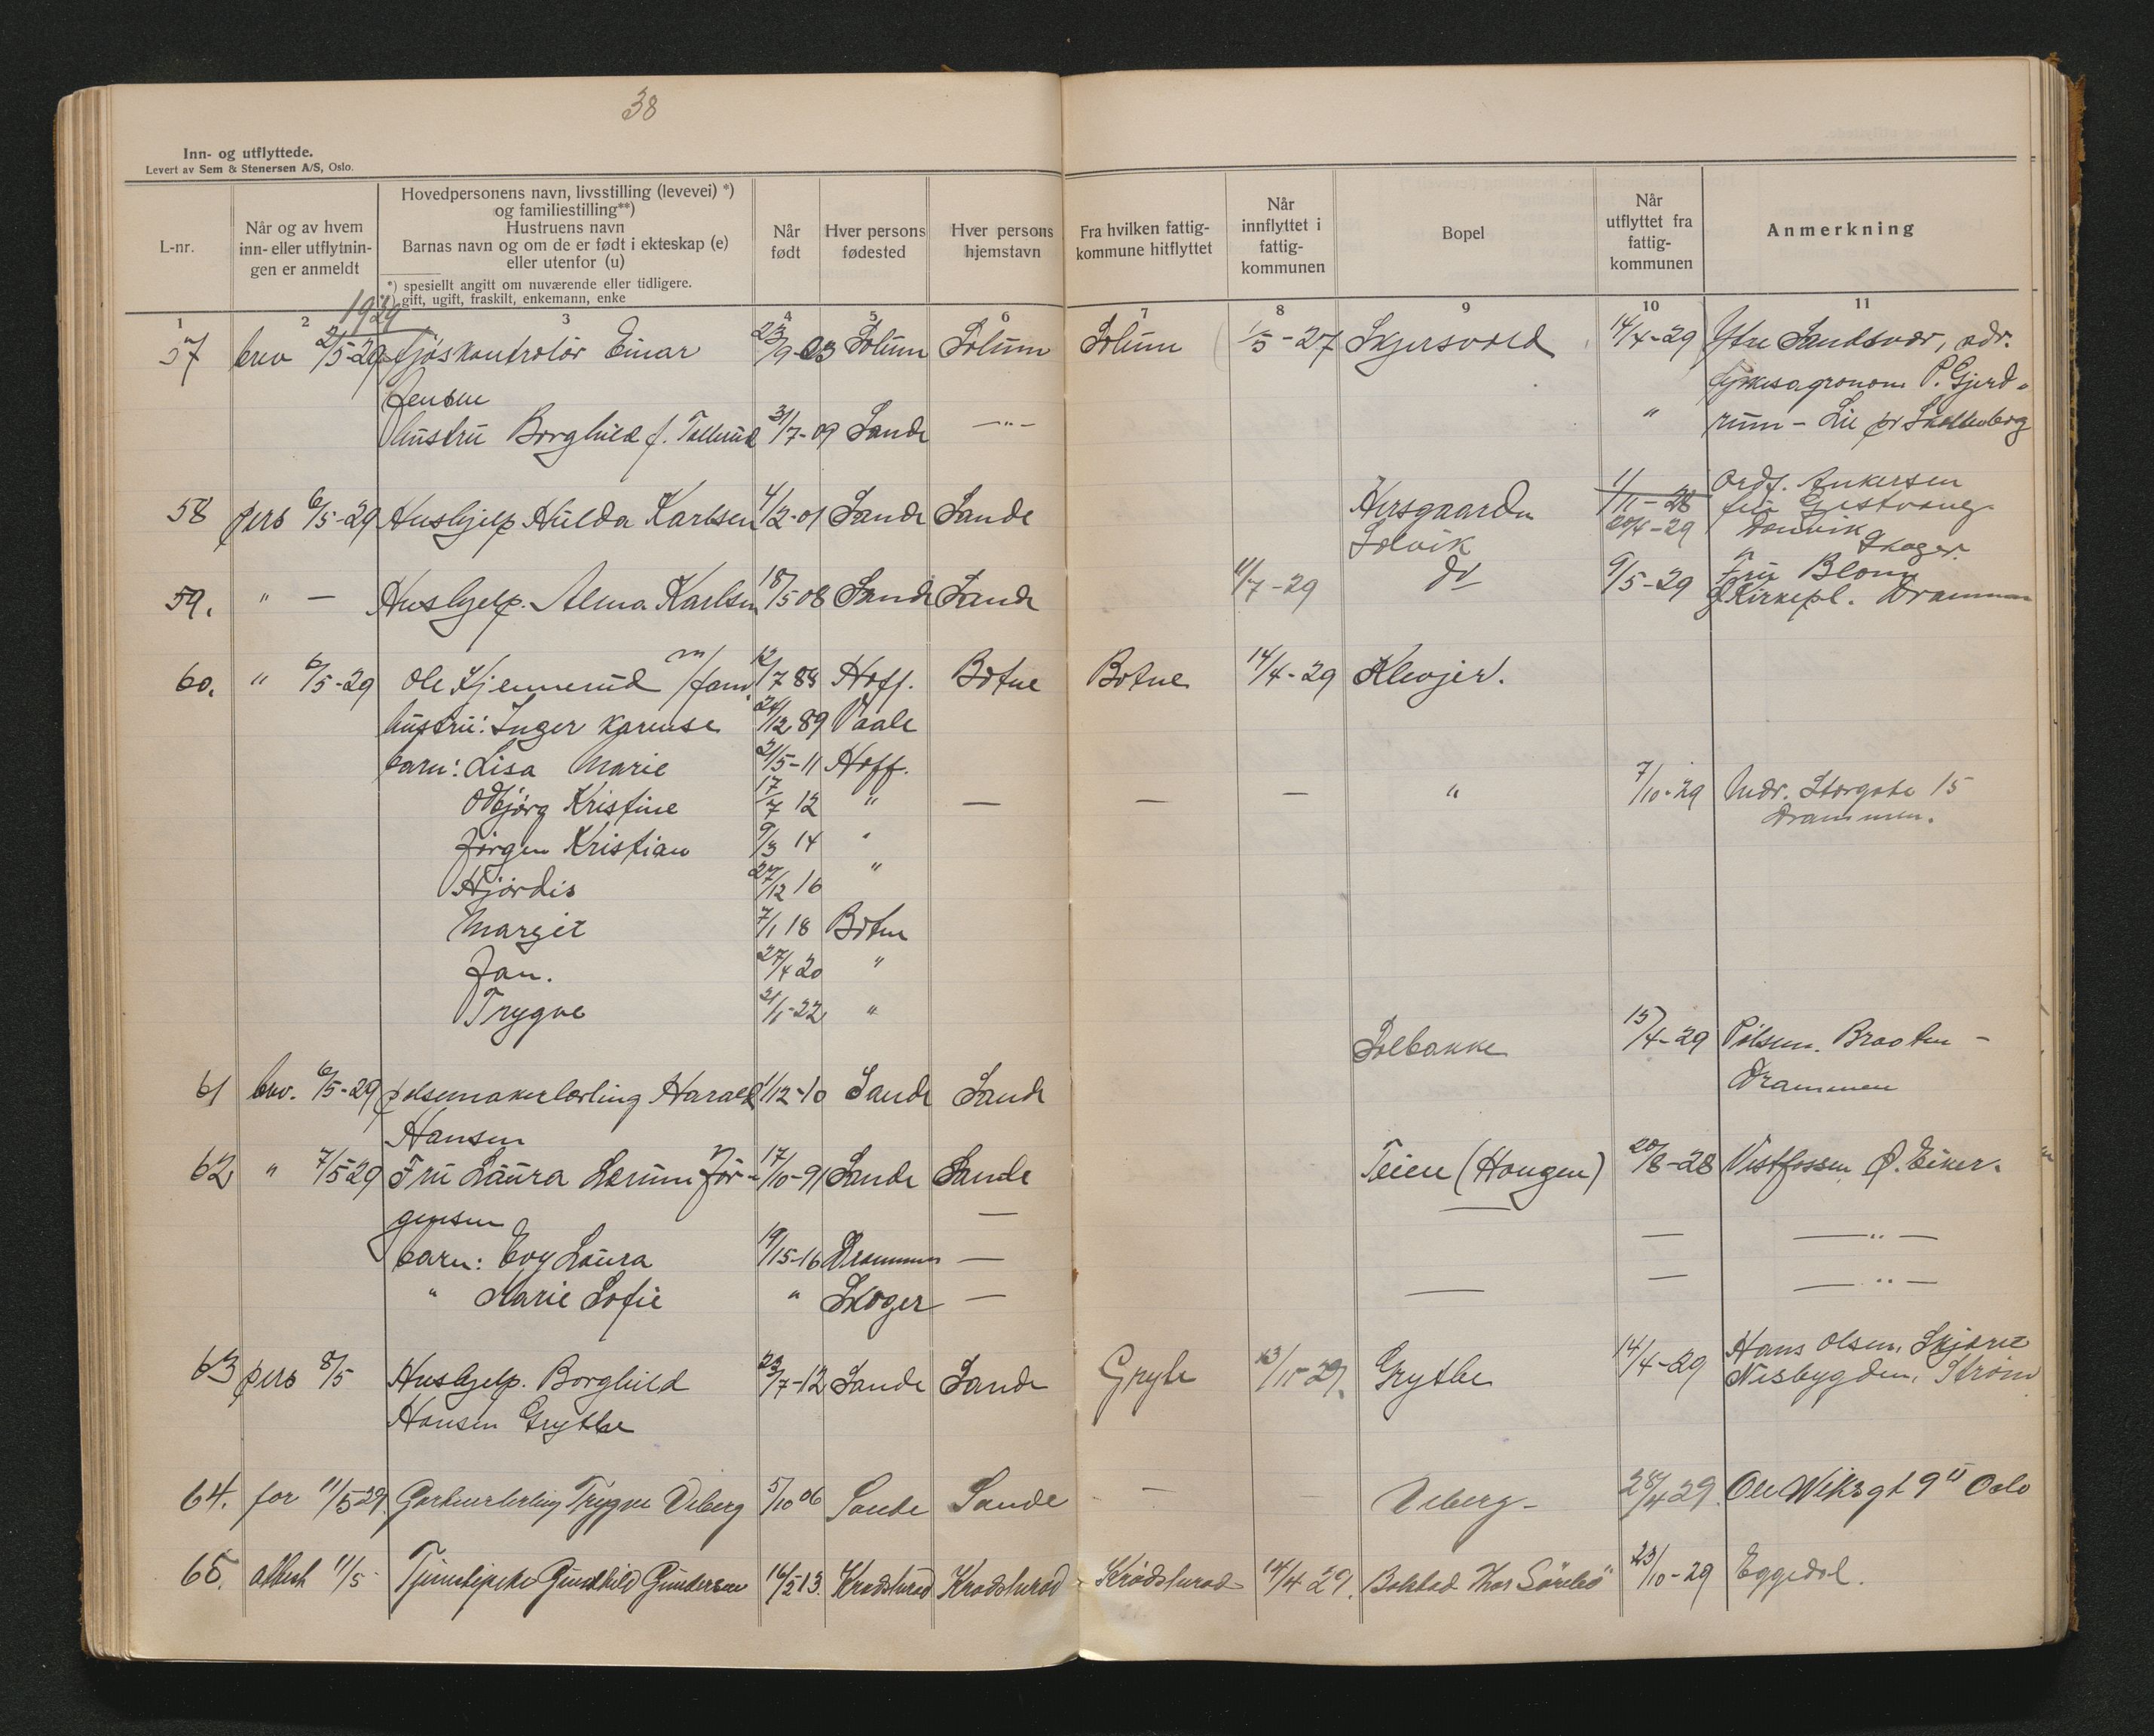 38
Inn- og utflyttede.
Levert av Sem & Stenersen A/S, Oslo.
L-nr.
Når og av hvem
inn- eller utflytnin-
gen er anmeldt
Hovedpersonens navn, livsstilling (levevei) *)
og familiestilling**)
Hustruens navn
Barnas navn og om de er født i ekteskap (e)
eller utenfor (u)
*) spesiellt angitt om nuværende eller tidligere.
**) gift, ugift, fraskilt, enkemann, enke
Når
født
Hver persons
fødested
Hver persons
hjemstavn
Fra hvilken fattig-
kommune hitflyttet
Når
innflyttet i
fattig-
kommunen
Bopel
Når
utflyttet fra
fattig-
kommunen
Anmerkning
1 2 3 4 5 6 7 8 9 10 11
1929
57 brev 2/5-29 fjøskontrolør Einar 23/9-03 Solum Solum Solum 1/5-27 Skjersvold 14/4-29 Ytre Sandsvær, adr.
Jensen fylkesagronom P. Gjerd-
hustru Borghild f. Tallerud 31/7-09 Sande —"— " rum - Lie pr Skollenborg
58 pers 6/5-29 Hushjelp Hulda Karlsen 4/2-01 Sande Sande Kersgaarden 1/11-28 Ordf. Ankersen
Solvik 20/4-29 Danvik Skoger.
59. " — Hushjelp. Alma Karlsen 18/5 08 Sande Sande 11/7-29 do 9/5-29 Fru Blom
Kirkepl. Drammen
60. " 6/5-29 Ole Kjennerud m/fam. 12/7 88 Hoff. Botne Botne 14/4-29 Klevjer.
hustru: Inger Karense 24/12 89 Vaale
barn: Lisa Marie 21/5-11 Hoff.
Oddbjørg Kristine 17/7 12 " — — — " 7/10-29 Modr. Storgate 15
Drammen.
Jørgen Kristian 9/3 14 "
Hjørdis 27/12 16 "
Margit 7/1 18 Botne
Jan. 27/4 20 "
Trygve 21/1-22 "
61 brev. 6/5-29 pølsemakerlærling Harald 1/12-10 Sande Sande Solbakke 15/4-29 Pølsem. Braaten -
Hansen Drammen
62 " 7/5 29 Fru Laura Lerum Jør- 17/10-91 Sande Sande Teien (Haugen) 20/8-28 Vestfossen, Ø. Eiker.
gensen —
barn: Evy Laura 19/15-16 Drammen — — —"—
" Marie Sofie " Skoger — — — —"—
63 pers 8/5 Hushjelp. Borghild 23/7-12 Sande Sande Gryte 23/11-29. Grytbe 14/4-29 Hans Olsen, Skjæret
Hansen Grytbe Nesbygden, Strøm
64. for 11/5 29. Gartnerlærling Trygve Viberg 5/10 06 Sande Sande — Viberg- 28/4 29. Ole Wiksgt 9 II Oslo
65. attest 11/5 Tjenestepike Gunhild Gundersen 16/5 13. Krødsherad Krødsherad Krødsherad 14/4 29. Bakstad Thor Sörebö 23/10-29 Eggedal.